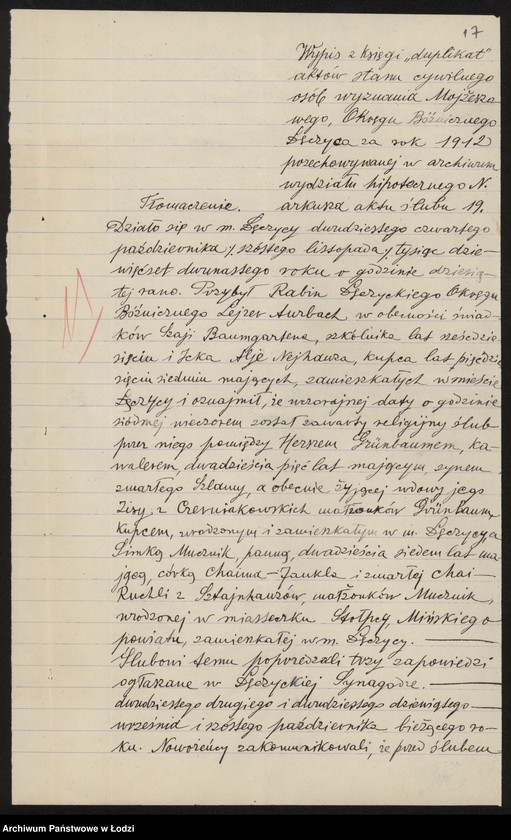 17
Wypis z księgi „duplikat"
aktów stanu cywilnego
osób wyznania Mojżesza
wego, Okręgu Bóźniczego
Łęczyca za rok 1912
przechowywanej w archiwum
wydziału hipotecznego N.
Tłomaczenie. arkusza aktu ślubu 19.
Działo się w m. Łęczycy dwudziestego czwartego
października /szóstego listopada/ tysiąc dzie-
więćset dwunastego roku o godzinie dziesią-
tej rano. Przybył Rabin Łęczyckiego Okręgu
Bóźniczego Lejzer Aurbach w obecności świad-
ków Szaji Baumgartena, szkolnika lat sześćdzie
sięciu i Icka Alje Nejhauza, kupca lat pięćdzie
sięciu siedmiu mających, zamieszkałych w mieście
Łęczycy i oznajmił, że wczorajszej daty o godzinie
siódmej wieczorem został zawarty religijny ślub
przez niego pomiędzy Herszem Grünbaumem, ka-
walerem, dwadzieścia pięć lat mającym, synem
zmarłego Szlamy, a obecnie żyjącej wdowy jego
Zisy, z Czerniakowskich małżonków Grünbaum,
kupcem, urodzonym i zamieszkałym w m. Łęczyca
Simką Mucznik, panną, dwadzieścia siedem lat ma-
jącą, córką Chaima-Jankla i zmarłej Chai-
Ruchli z Sztajnhauzów, małżonków Mucznik,
urodzonej w miasteczku Stołpcy Mińskiego
powiatu, zamieszkałej w m. Łęczycy.
Ślubowi temu poprzedzali trzy zapowiedzi
ogłaszane w Łęczyckiej Synagodze.
dwudziestego drugiego i dwudziestego dziewiątego
września i szóstego października bieżącego ro-
ku. Noworzeńcy zakomunikowali, że przed ślubem
Archiwum Państwowe w Łodzi